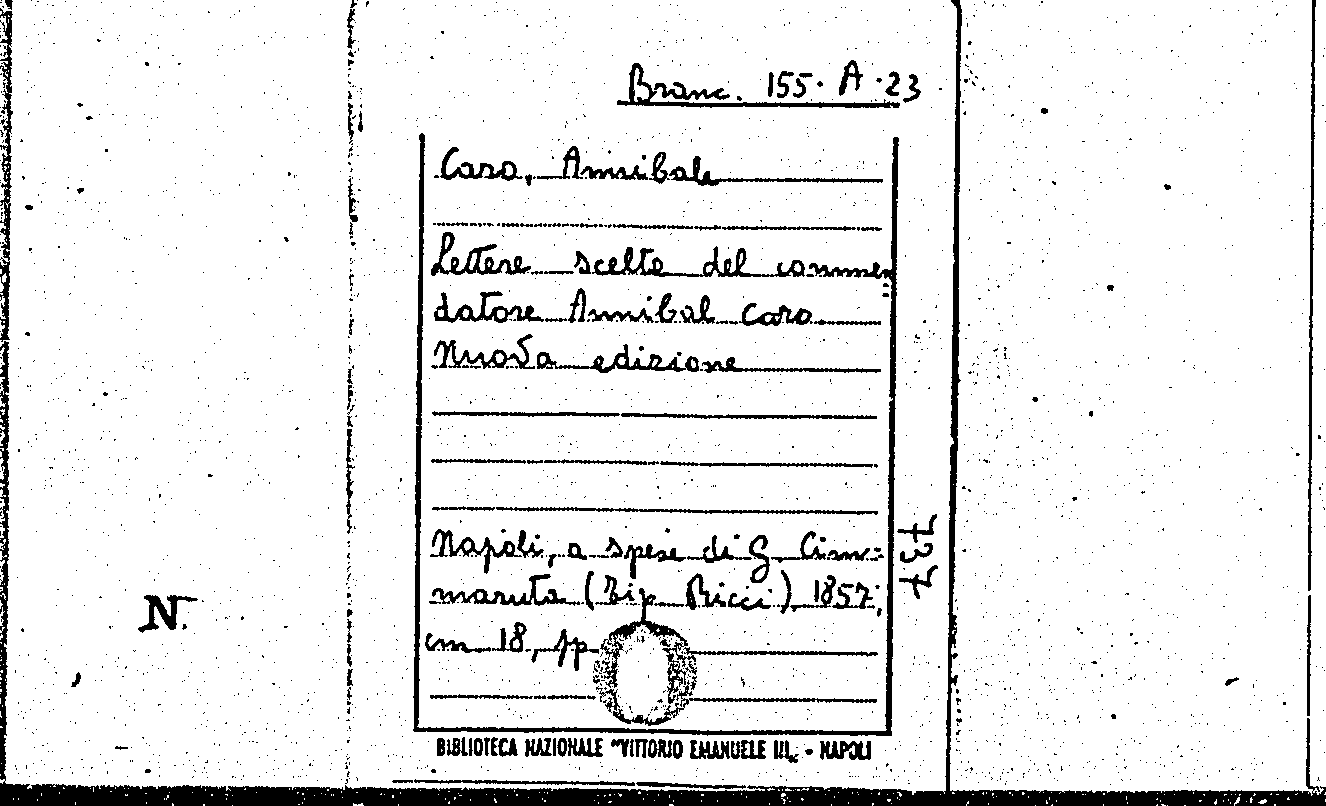 Branc. 155. A. 23
Caro, Annibale
Lettere scelte del commen
datore Annibal Caro.
Nuova edizione
Napoli, a spese di G. Cim-
maruta (Tip Ricci) 1857,
cm. 18, pp.
737
N.
BIBLIOTECA NAZIONALE "VITTORIO EMANUELE III„ - NAPOLI